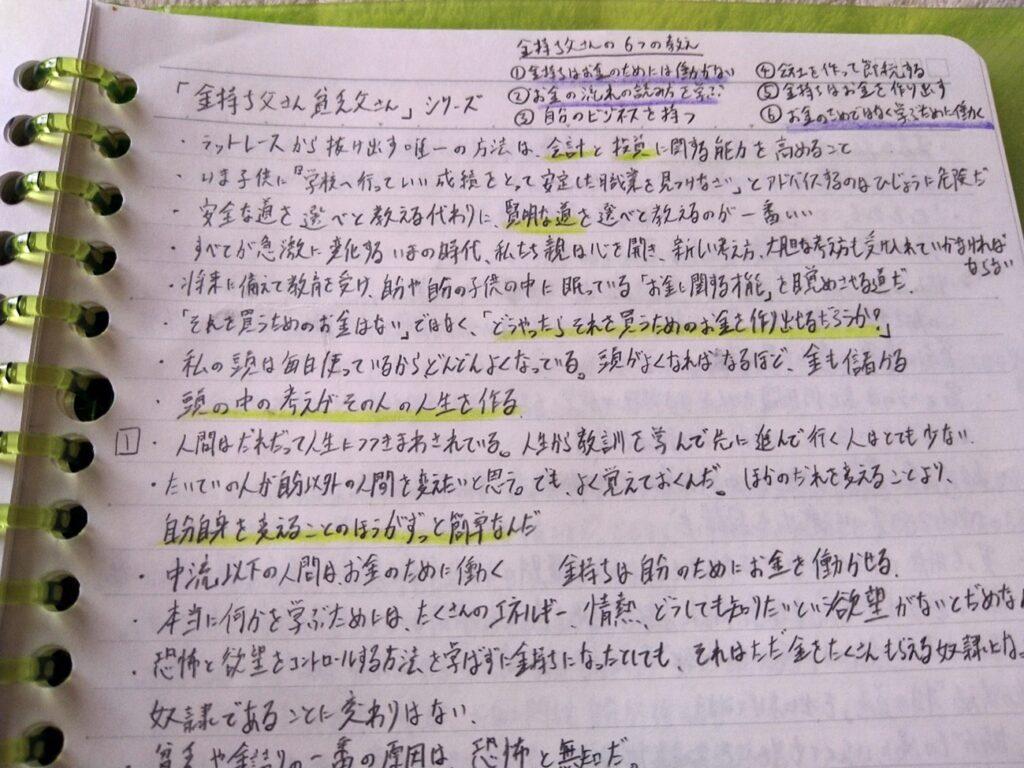 金持ち父さんの6つの教え
①金持ちはお金のためには働かない
②お金の流れの読み方を学ぶ
③自分のビジネスを持つ
④会社を作って節税する
⑤金持ちはお金を作り出す
⑥お金のためではなく学ぶために働く
「金持ち父さん貧乏父さん」シリーズ
・ラットレースから抜け出す唯一の方法は、会計と投資に関する能力を高めること
・いま子供に「学校へ行っていい成績をとって安定した職業を見つけなさい」とアドバイスするのはひじょうに危険だ
・安全な道を選べと教える代わりに、賢明な道を選べと教えるのが一番いい
・すべてが急激に変化するいまの時代、私たち親は心を開き、新しい考え方、大胆な考え方も受け入れていかなければ
ならない
・将来に備えて教育を受け、自分や自分の子供の中に眠っている「お金に関する才能」を目覚めさせる道だ。
・「それを買うためのお金はない」ではなく、「どうやったらそれを買うためのお金を作り出せるだろうか?」
・私の頭は毎日使っているからどんどんよくなっている。頭がよくなればなるほど、金も儲かる
・頭の中の考えがその人の人生を作る
1 ・人間はだれだって人生につつきまわされている。人生から教訓を学んで先に進んで行く人はとても少ない。
・たいていの人が自分以外の人間を変えたいと思う。でも、よく覚えておくんだ。ほかのだれを変えることより、
自分自身を変えることのほうがずっと簡単なんだ
・中流以下の人間はお金のために働く 金持ちは自分のためにお金を働かせる。
・本当に何かを学ぶためには、たくさんのエネルギー、情熱、どうしても知りたいという欲望がないとだめなん
・恐怖と欲望をコントロールする方法を学ばずに金持ちになったとしても、それはただ金をたくさんもらえる奴隷とな
奴隷であることに変わりはない。
・貧乏や金詰りの一番の原因は、恐怖と無知だ。